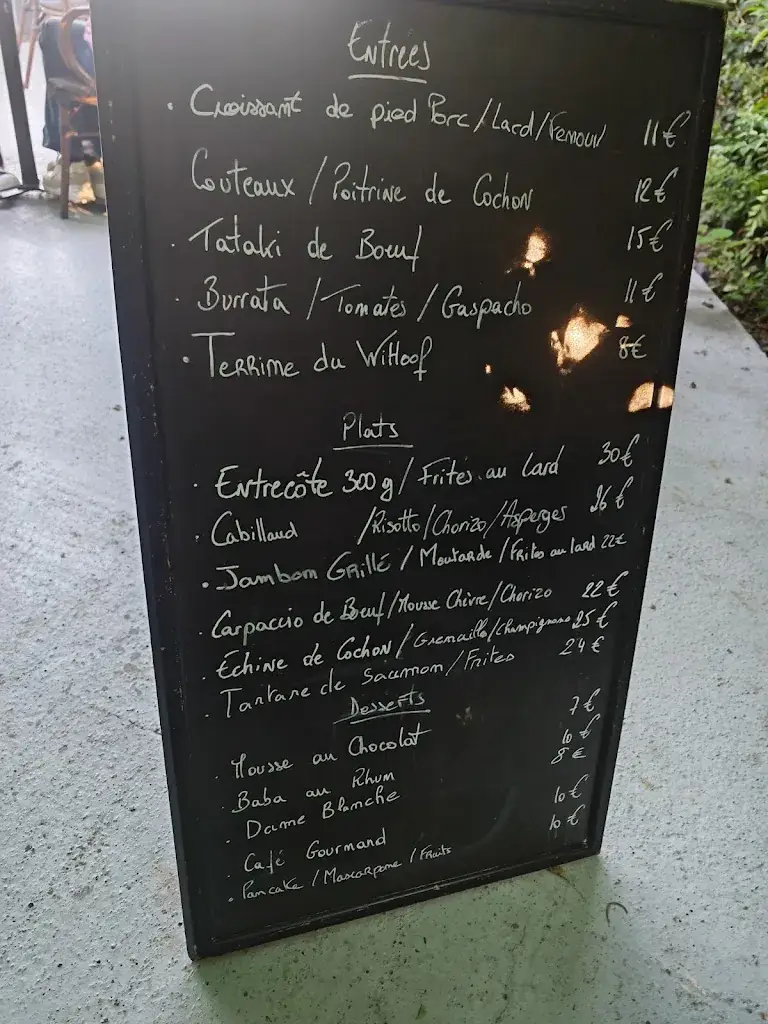 Entrees
• Croissant de pied Porc / Lard / Fenouil 11€
Couteaux / Poitrine de Cochon 12€
• Tataki de Boeuf 15€
• Burrata / Tomates / Gaspacho 11€
• Terrine du Witloof 8€
Plats
• Entrecôte 300g / Frites au lard 30€
• Cabillaud / Risotto / Chorizo / Asperges 26€
• Jambon Grillé / Moutarde / Frites au lard 22€
• Carpaccio de Boeuf / Mousse Chèvre / Chorizo 22€
• Échine de Cochon / Grenaille / Champignons 25€
• Tartare de Saumon / Frites 24€
Desserts
• Mousse au Chocolat 7€
• Baba au Rhum 10€
• Dame Blanche 8€
• Café Gourmand 10€
• Pancake / Mascarpone / Fruits 10€